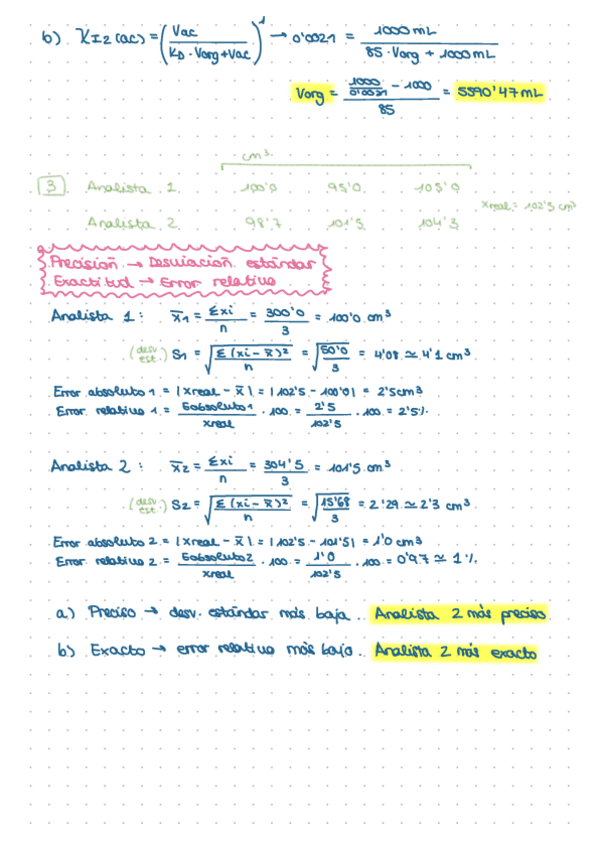 b) χI2(ac) = (Vac / KD · Vorg + Vac)^1 → 0'0021 = 1000 mL / 85 · Vorg + 1000 mL
Vorg = (1000/0'0021 - 1000) / 85 = 5590'47 mL
cm³
3 Analista 1. 100'0 95'0 105'0
xreal = 102'5 cm³
Analista 2. 98'7 101'5 104'3
Precisión → Desviación estándar
Exactitud → Error relativo
Analista 1: x̄1 = Σxi / n = 300'0 / 3 = 100'0 cm³
(desv est.) S1 = √(Σ(xi - x̄)² / n) = √(50'0 / 3) = 4'08 ≃ 4'1 cm³
Error absoluto1 = |xreal - x̄| = |102'5 - 100'0| = 2'5 cm³
Error relativo 1 = Eabsoluto1 / xreal · 100 = 2'5 / 102'5 · 100 = 2'5%
Analista 2: x̄2 = Σxi / n = 304'5 / 3 = 101'5 cm³
(desv est.) S2 = √(Σ(xi - x̄)² / n) = √(15'68 / 3) = 2'29 ≃ 2'3 cm³
Error absoluto 2 = |xreal - x̄| = |102'5 - 101'5| = 1'0 cm³
Error relativo 2 = Eabsoluto2 / xreal · 100 = 1'0 / 102'5 · 100 = 0'97 ≃ 1%
a) Preciso → desv. estándar más baja. Analista 2 más preciso
b) Exacto → error relativo más bajo. Analista 2 más exacto